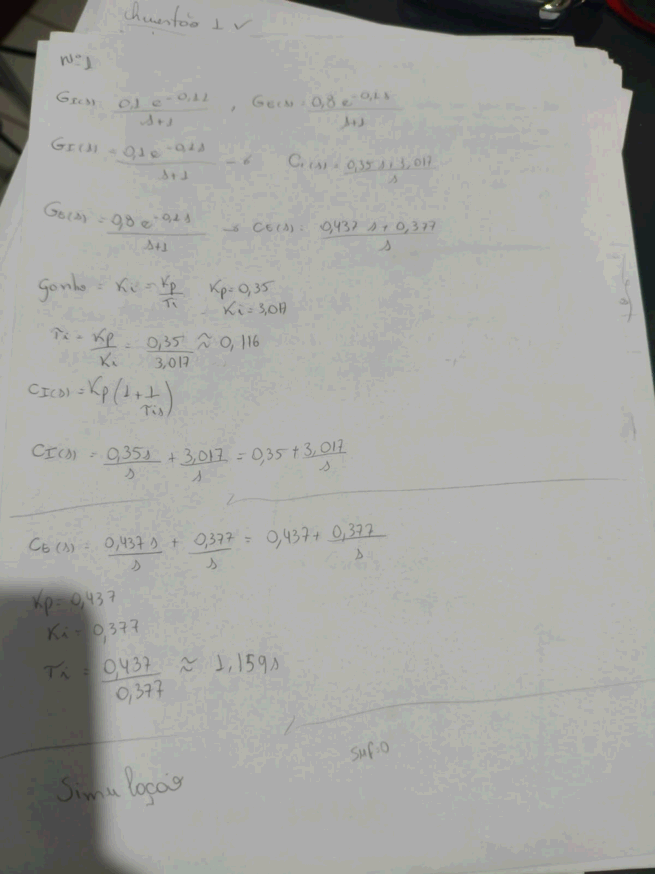 Questão 1 ✓
Nº1
GI(s) = 0,1 e^-0,1s / s+1 , GE(s) = 0,8 e^-0,1s / s+1
GI(s) = 0,1 e^-0,1s / s+1 → CI(s) = 0,35 s + 3,017 / s
GE(s) = 0,8 e^-0,1s / s+1 → CE(s) = 0,437 s + 0,377 / s
ganho = Ki = Kp / Ti Kp = 0,35
Ki = 3,017
Ti = Kp / Ki = 0,35 / 3,017 ≈ 0,116
CI(s) = Kp (1 + 1 / Tis)
CI(s) = 0,35s / s + 3,017 / s = 0,35 + 3,017 / s
CE(s) = 0,437 s / s + 0,377 / s = 0,437 + 0,377 / s
Kp = 0,437
Ki = 0,377
Ti = 0,437 / 0,377 ≈ 1,159s
Simulação